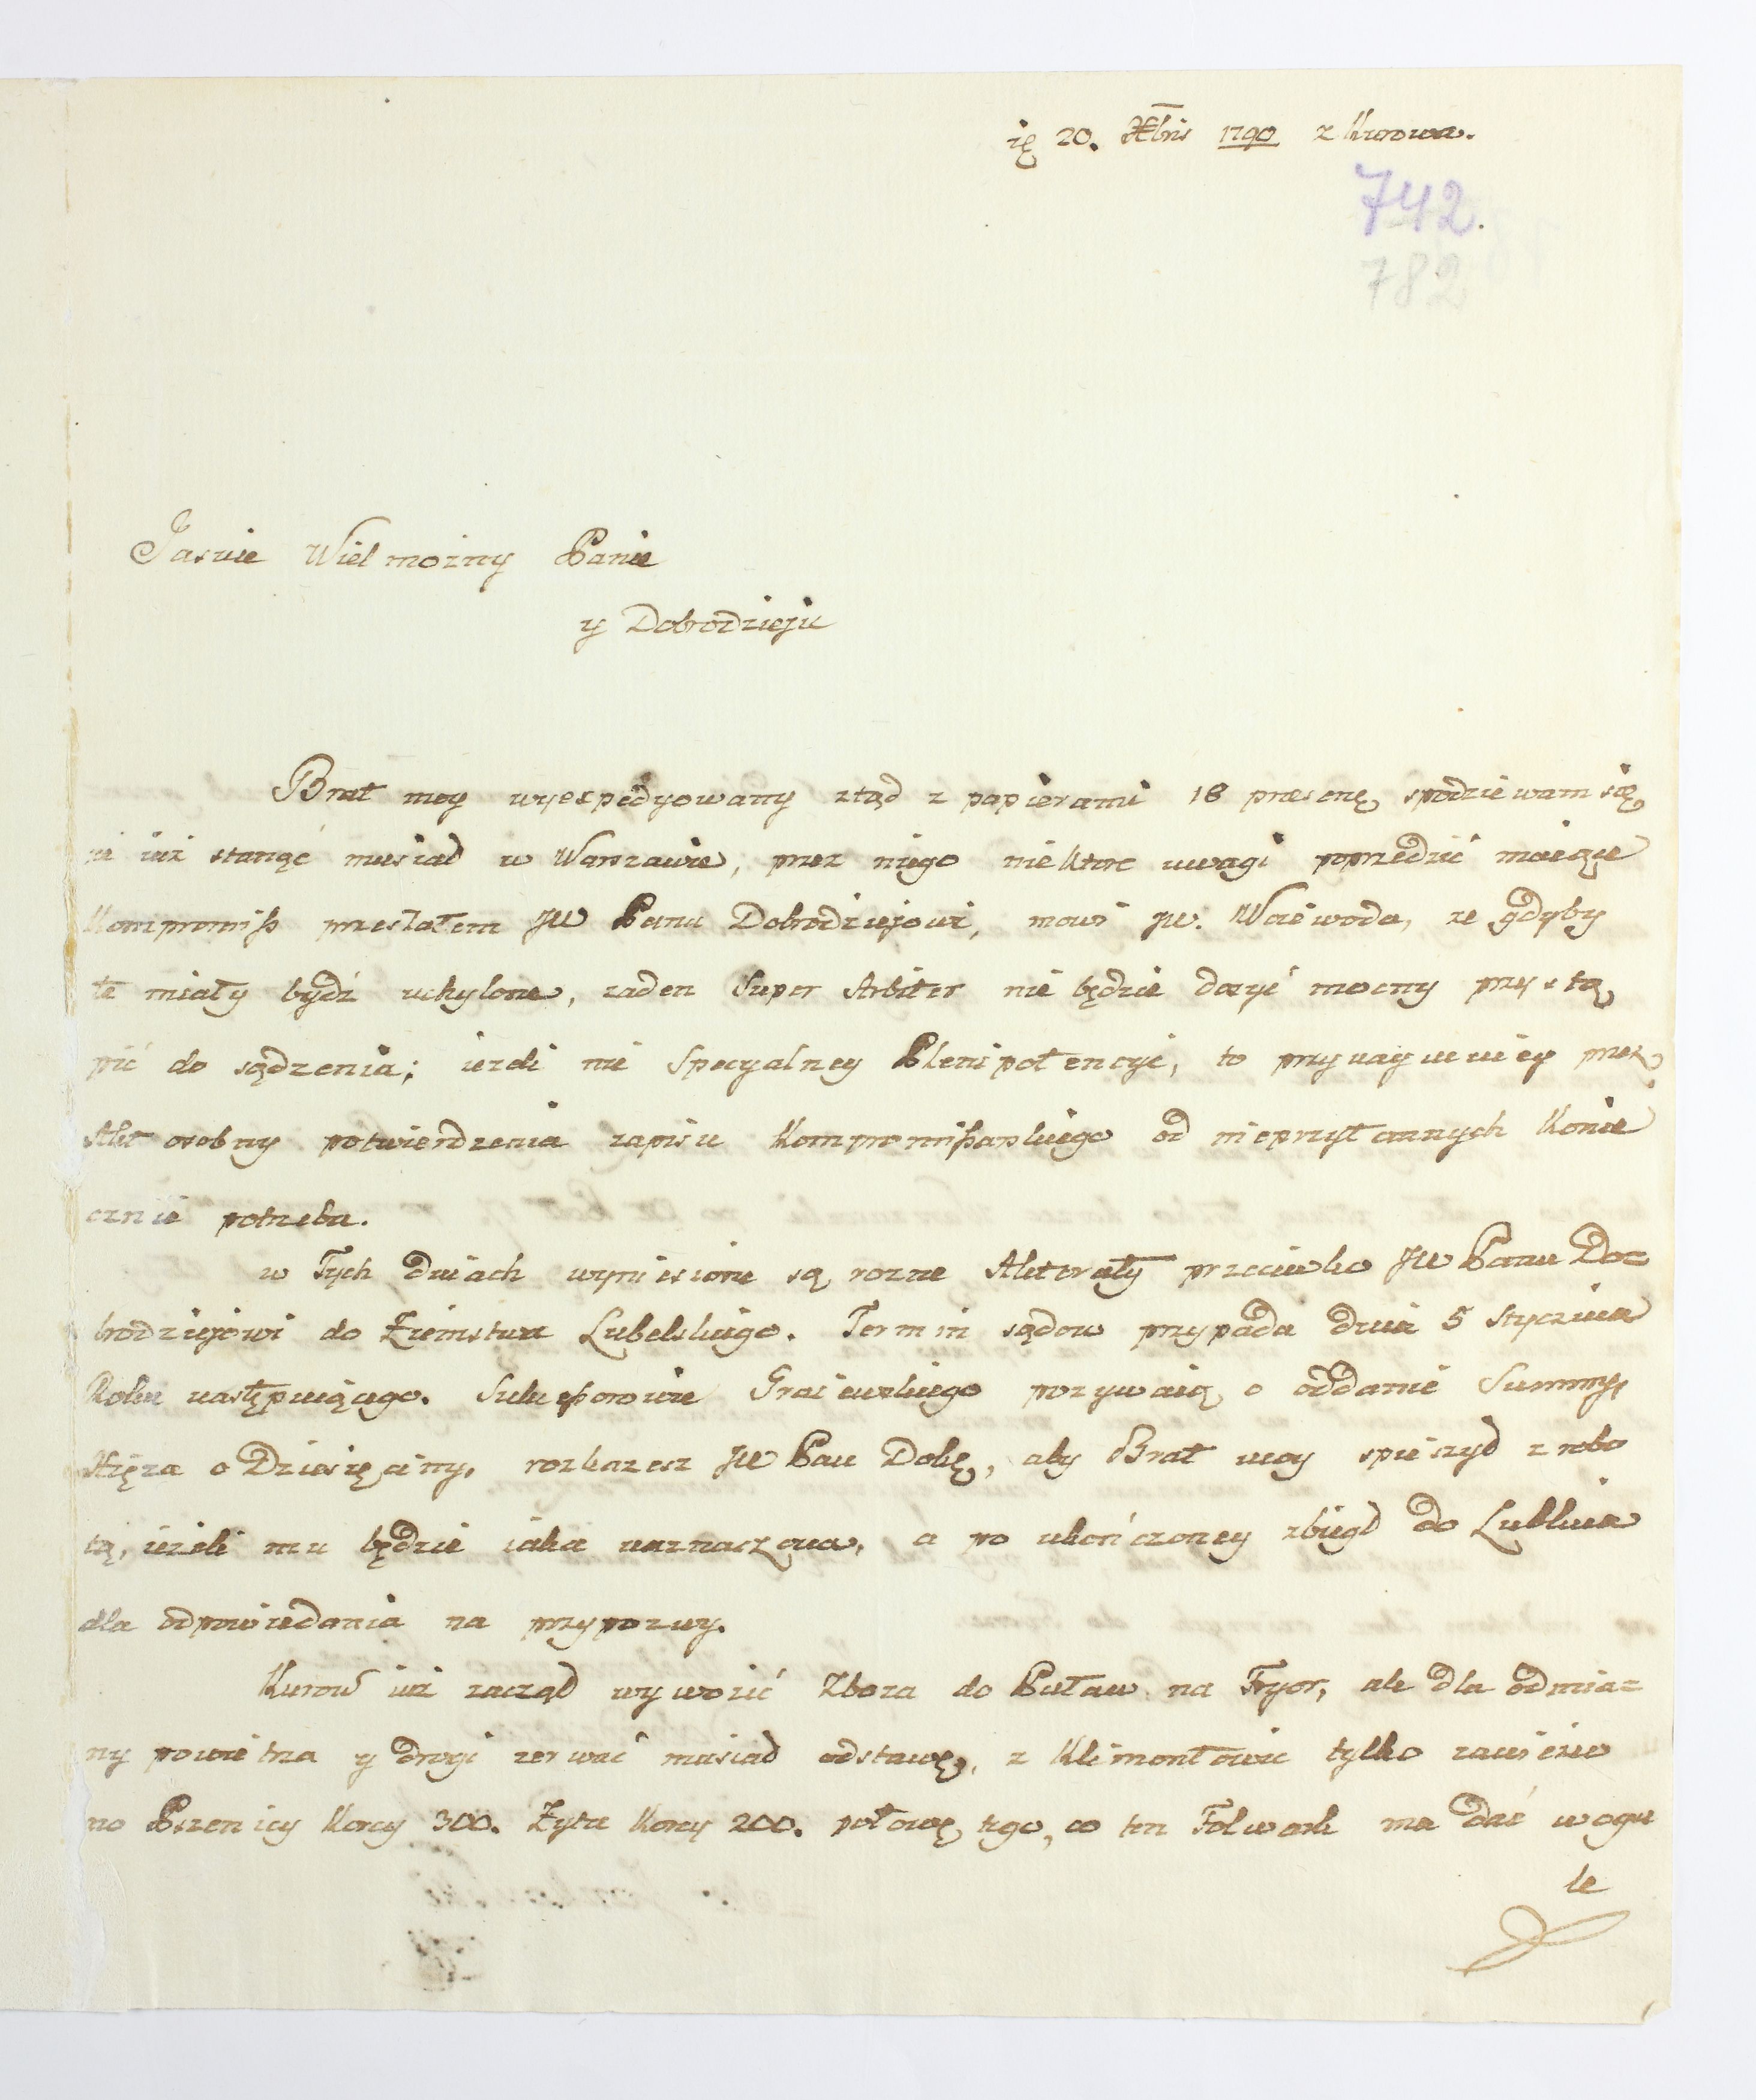 20. Xbris 1790 z Kurowa.
742.
782
Jasnie Wielmozny Panie
y Dobrodzieju
Brat moy wyexpedyowany ztąd z papierami 18 presentę, spodziewam się,
że iuż stanąć musiał w Warszawie, przez niego niektore uwagi poprzedzić maiące
Kompromiss przesłałem JW Panu Dobrodziejowi, mowi JW. Woiewoda, ze gdyby
te miały bydź uchylone, zaden Super Arbiter nie będzie dosyć mocny przystą
pić do sądzenia; iezeli nie Specyalney Plenipotencyi, to przynaymniey przez
Akt osobny potwierdzenia zapisu Kompromissarskiego od nieprzytomnych Konie
cznie potrzeba.
w Tych dniach wyniesione są rozne Akteraty przeciwko JW Panu Do=
brodziejowi do Ziemstwa Lubelskiego. Termin sądow przypada dnia 5 Stycznia
Roku następuiącego. Sukcessorowie Graiewskiego pozywaią o oddanie Summy,
Xięza o Dziesięciny, rozkazesz JW Pan Dobę, aby Brat moy spieszył z robo
tą, iezeli mu będzie iaka naznaczona, a po ukończoney zbiegł do Lublina
dla odpowiedania na przypozwy.
Kurow iuż zaczął wywozić Zboza do Puław na Fryor, ale dla odmia=
ny powietrza y drogi zerwać musiał odstawę, z Klimontowic tylko zawiezio
no Pszenicy Korcy 300. Żyta Korcy 200. połowę tego, co ten Folwark ma dać w ogu
le